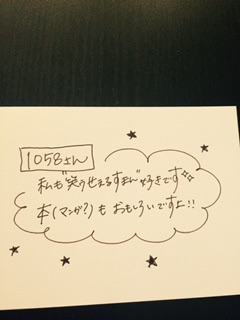 1058さん
私も"笑ゥせぇるすまん"好きです
本(マンガ?)も おもしろいですよ!!